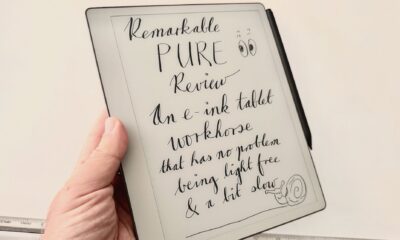 Remarkable
PURE
Review
An e-ink tablet
workhorse
that has no problem
being light free
& a bit slow